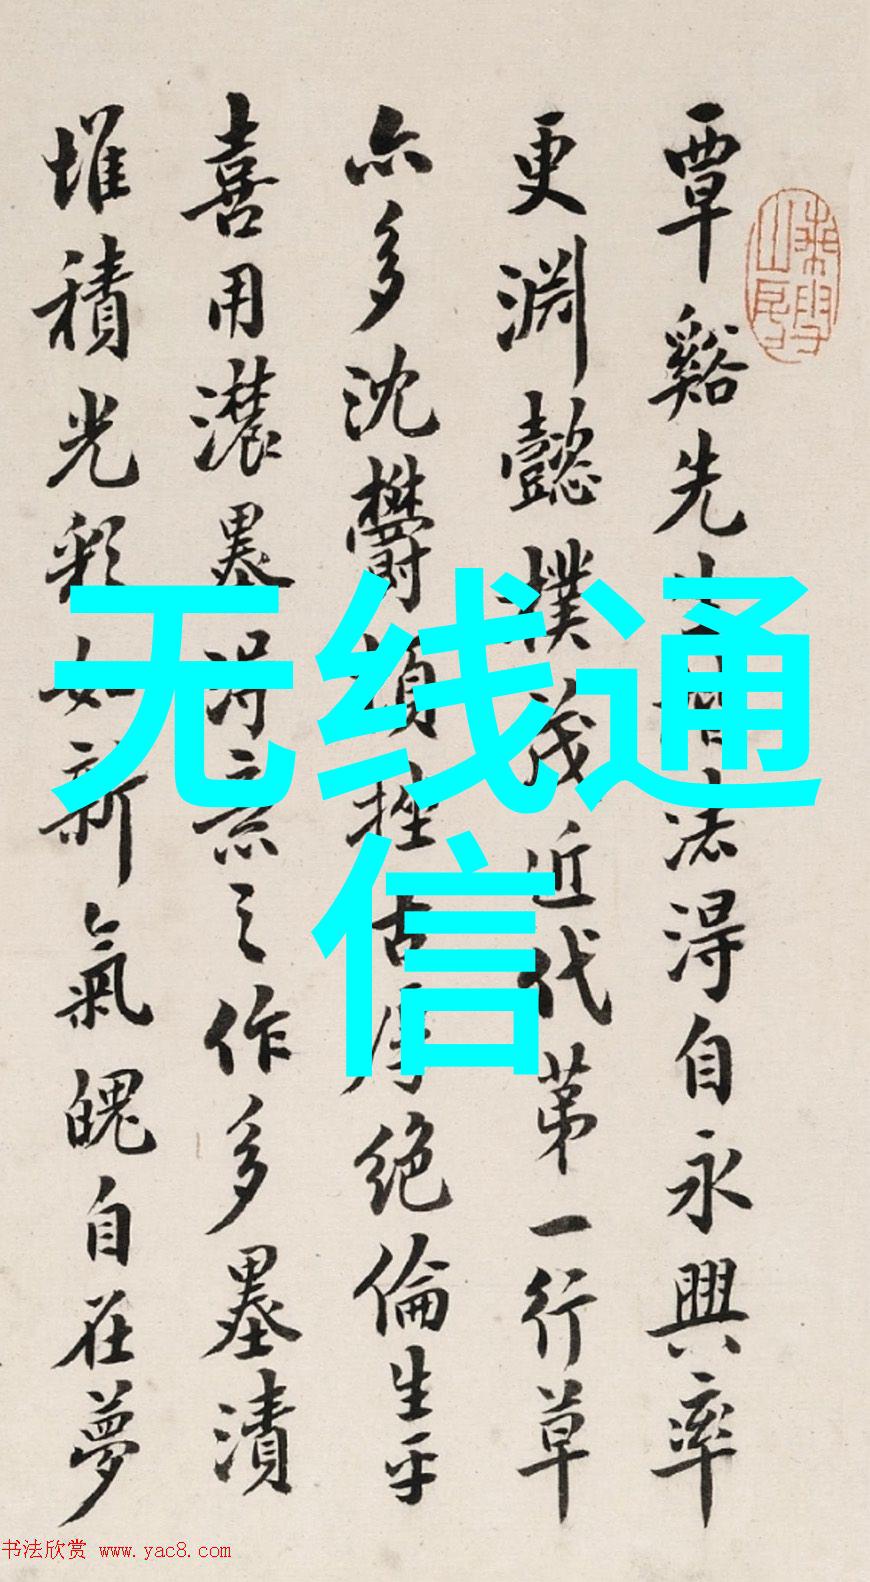 覃谿先生楷法得自永興率
更淵懿樸茂近代第一行草
亦多沈欝頓挫古厚絶倫生平
喜用濃墨得意之作多墨漬
堆積光彩如新氣魄自在夢
无线通
信
书法欣赏 www.yac8.com